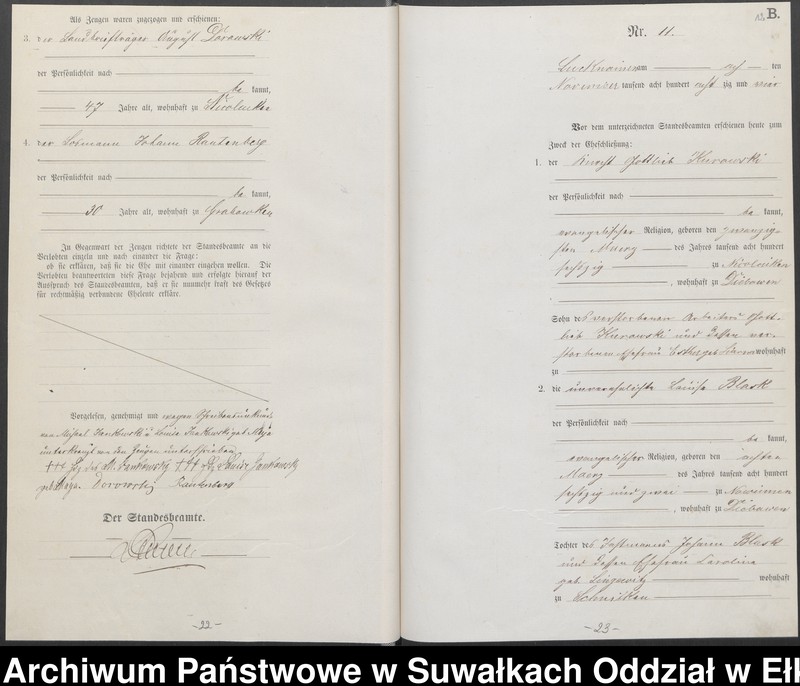 Als Zeugen waren zugezogen und erschienen:
3. der Landbriefträger August Dorowski
der Persönlichkeit nach
be kannt,
47 Jahre alt, wohnhaft zu
4. der Losmann Johann Rautenberg
der Persönlichkeit nach
be kannt,
30 Jahre alt, wohnhaft zu Grabowken
In Gegenwart der Zeugen richtete der Standesbeamte an die
Verlobten einzeln und nach einander die Frage:
ob sie erklären, daß sie die Ehe mit einander eingehen wollen. Die
Verlobten beantworteten diese Frage bejahend und erfolgte hierauf der
Ausspruch des Standesbeamten, daß er sie nunmehr kraft des Gesetzes
für rechtmäßig verbundene Eheleute erkläre.
Vorgelesen, genehmigt und wegen Schreibensunkunde
von Michael Jankowski u Louise Jankowski geb
unterkreuzt von den Zeugen unterschrieben
+++ Hz des M. Jankowsky +++ Hz Louise Jankowsky
geb Dorowski Rautenberg
Der Standesbeamte.
-22-
13 B.
Nr. 11.
Lucknainen am ten
November tausend acht hundert acht zig und vier
Vor dem unterzeichneten Standesbeamten erschienen heute zum
Zweck der Eheschließung:
1. der Knecht Gottlieb Kurowski
der Persönlichkeit nach
be kannt,
evangelischer Religion, geboren den zwanzig-
sten Maerz des Jahres tausend acht hundert
sechszig zu Nicolaiken
, wohnhaft zu Diebowen
Sohn des verstorbenen Arbeiters Gott-
lieb Kurowski und dessen ver-
storbenen Ehefrau Esther geb wohnhaft
zu
2. die unverehelichte Louise Blask
der Persönlichkeit nach
be kannt,
evangelischer Religion, geboren den achten
Maerz des Jahres tausend acht hundert
sechszig und zwei zu
, wohnhaft zu Diebowen
Tochter des Instmanns Johann Blask
und dessen Ehefrau Caroline
geb wohnhaft
zu
-23-
Archiwum Państwowe w Suwałkach Oddział w Ełk